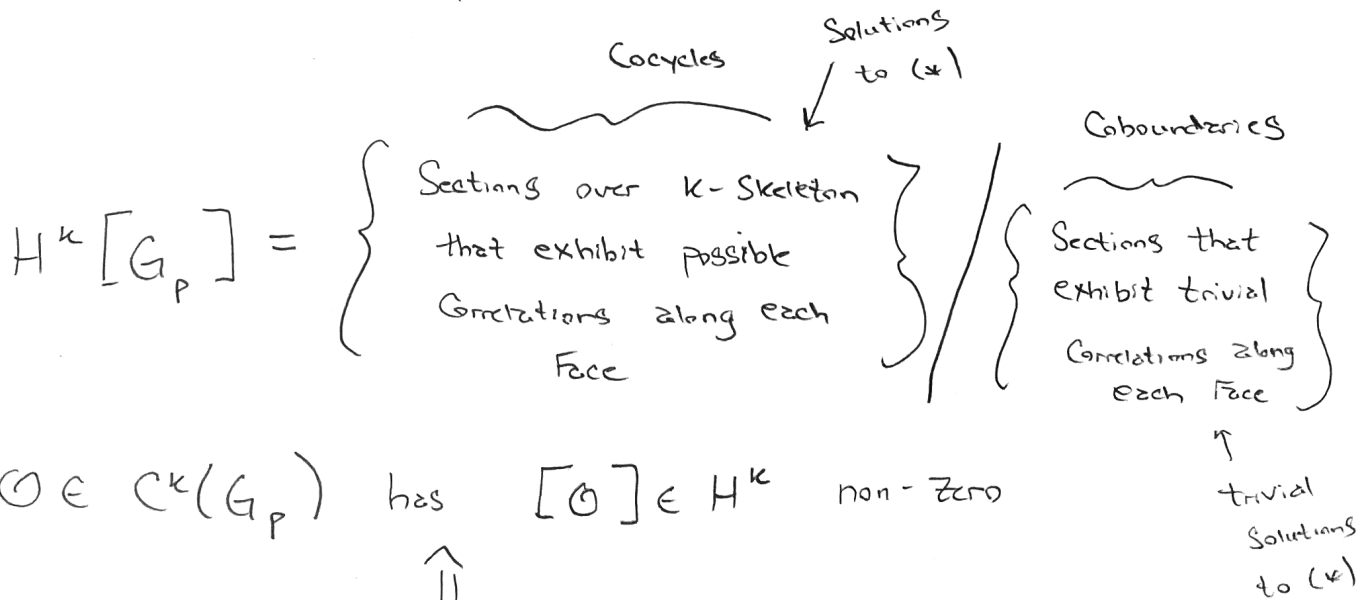 Cocycles
Solutions
to (*)
Coboundaries
H^k [G_p] = { Sections over k-Skeleton
that exhibit possible
Correlations along each
Face } / { Sections that
exhibit trivial
Correlations along
each Face }
↑
trivial
Solutions
to (*)
O ∈ C^k(G_p) has [O] ∈ H^k non-zero
⇑